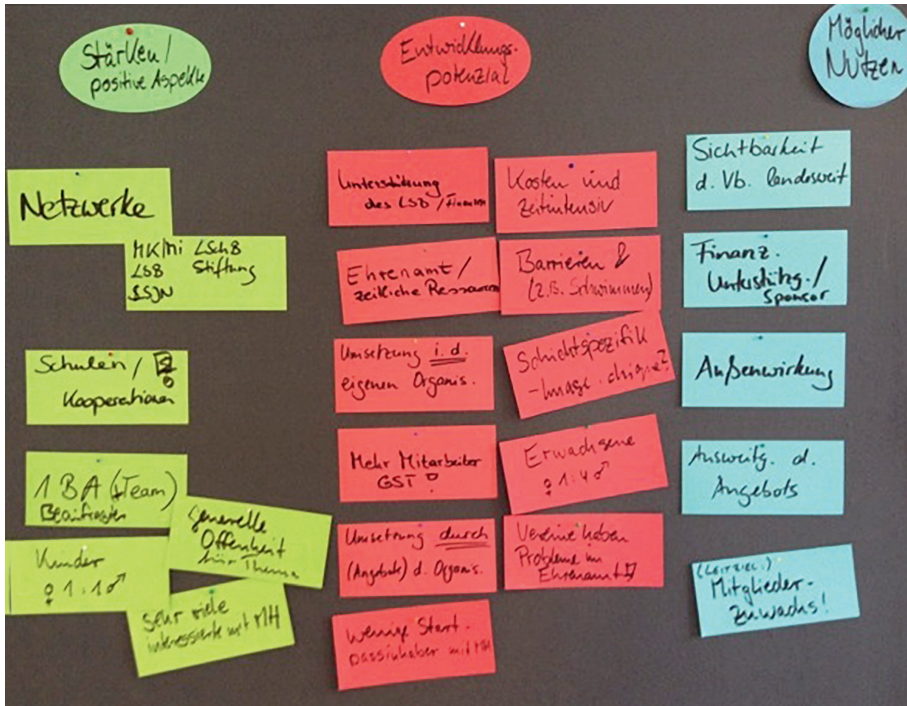 Stärken/
positive Aspekte
Netzwerke
MK/Mi LSchB
LSB Stiftung
Schulen/
Kooperationen
1 BA (+Team)
Beauftragten
generelle
Offenheit
fürs Thema
Kinder
♀ 1:1 ♂
Sehr viele
interessierte mit MH
Entwicklungs-
potenzial
Unterstützung
des LSB / Finanzen
Ehrenamt /
zeitliche Ressourcen
Umsetzung i.d.
eigenen Organis.
Mehr Mitarbeiter
GST
Umsetzung durch
(Angebote) d. Organis.
wenige Start-
passinhaber mit MH
Kosten und
Zeitintensiv
Barrieren
(z.B. Schwimmen)
Schichtspezifik
- Image
Erwachsene
♀ 1:4 ♂
Vereine haben
Probleme im
Ehrenamt
Möglicher
Nutzen
Sichtbarkeit
d. Vb. landesweit
Finanz.
Unterstützg./
Sponsor
Außenwirkung
Ausweitg. d.
Angebots
(LEITZIEL:)
Mitglieder-
zuwachs!